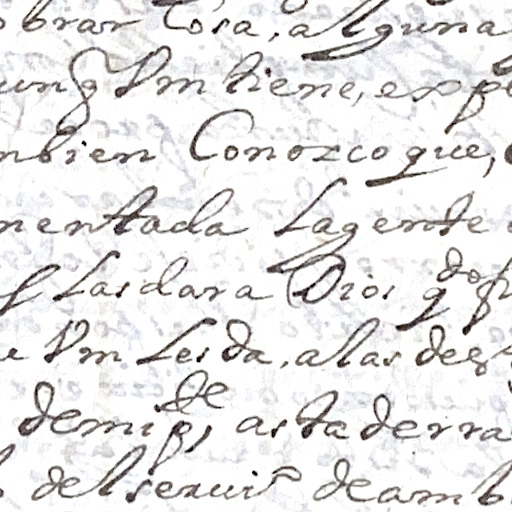 obrar Cosa, alguna
unq Vm tiene, exp
mbien Conozco que,
mentada La gente
Las dara Dios q do
Vm Les da, a las de
de mi pte, asta derra
del seruiº de amb